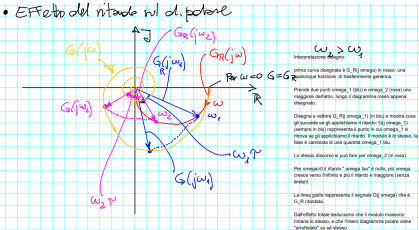 • Effetto del ritardo sul di polare
G(jω)
J
G_R(jω₂)
G_R(jω)
ω₂ > ω₁
G_R(jω₁)
Per ω=0 G=G_R
R
ω
G(jω₂)
ω₂
ω₁
ω₁τ
G(jω₁)
ω₂τ
Interpretazione disegno:
prima curva disegnata è G_R(j omega) in rosso: una
qualunque funzione di trasferimento generica
Prende due punti omega_1 (blu) e omega_2 (rosa) uno
maggiore dell'altro, lungo il diagramma rosso appena
disegnato.
Disegna e vettore G_R(j omega_1) (in blu) e mostra cosa
gli succede se gli applichiamo il ritardo: G(j omega_1)
(sempre in blu) rappresenta il punto in cui omega_1 si
ritrova se gli applichiamo il ritardo. Il modulo è lo stesso, la
fase è cambiata di una quantità omega_1 tau.
Lo stesso discorso si può fare per omega_2 (in rosa).
Per omega=0 il ritardo " omega tau" è nullo, più omega
cresce verso l'infinito e più il ritardo è maggiore (senza
limite)!
La linea gialla rappresenta il segnale G(j omega) che è
G_R ritardata.
Dall'effetto totale deduciamo che il modulo massimo
rimane lo stesso, e che l'intero diagramma polare viene
"arrotolato" su sé stesso